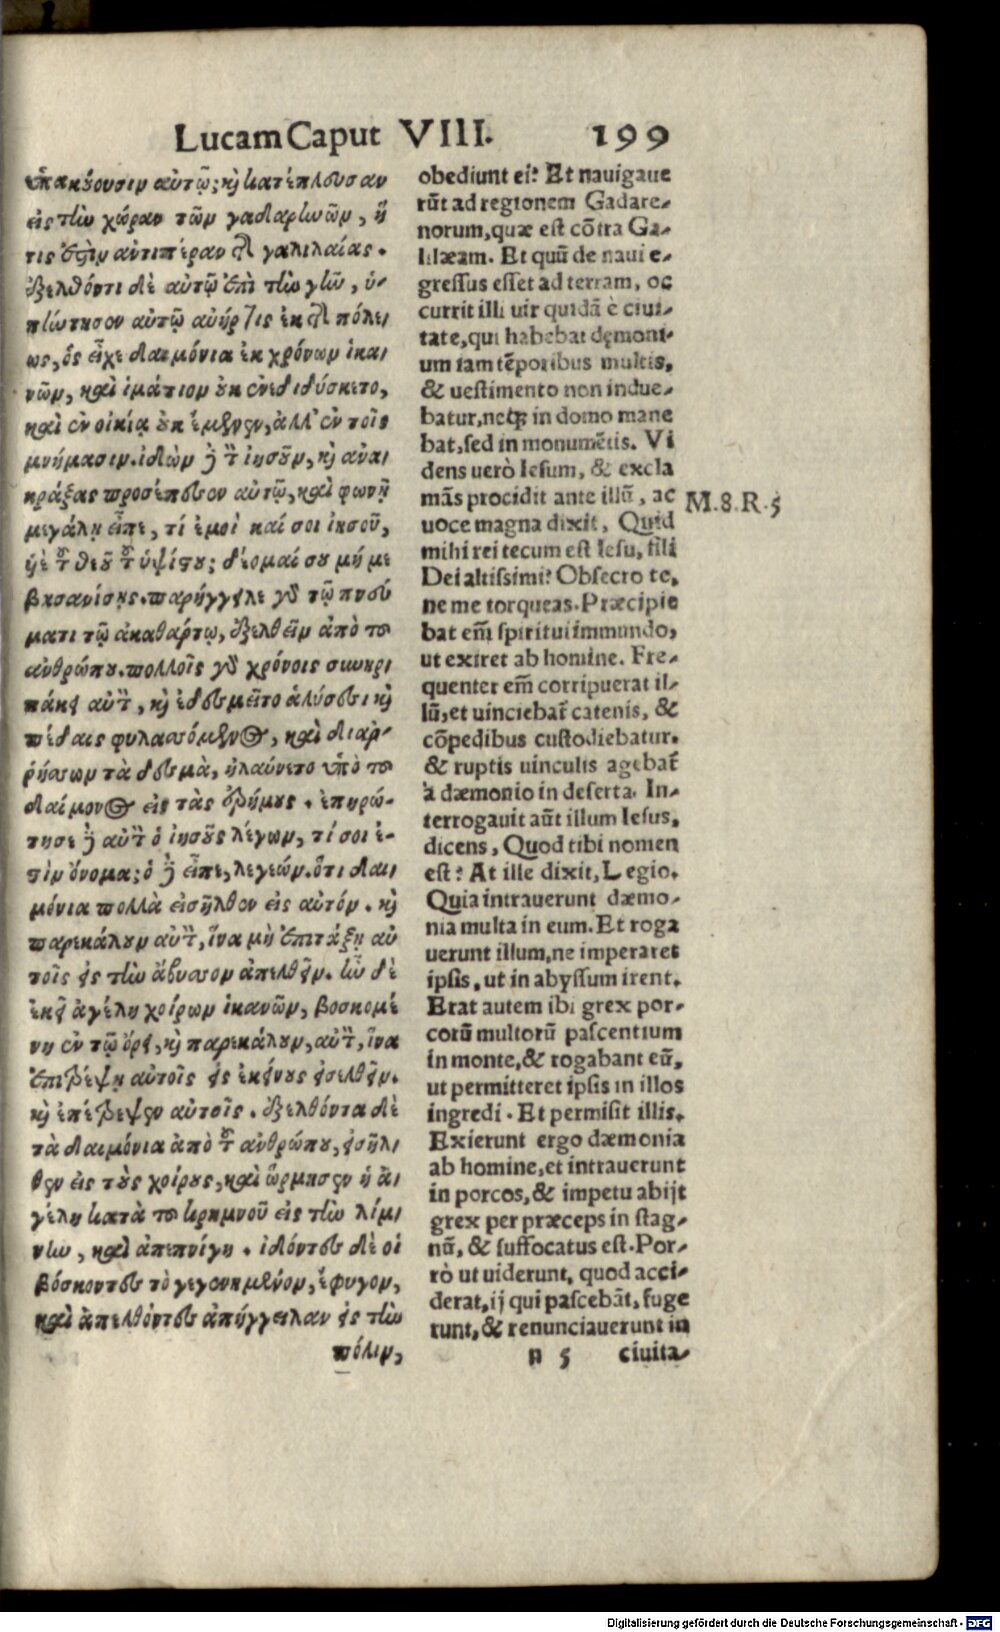 Lucam Caput VIII. 199
ὑπακούουσιν αὐτῷ; καὶ κατέπλευσαν
εἰς τὴν χώραν τῶν γαδαρηνῶν, ἥ
τις ἐστὶν αντιπέραν τῆς γαλιλαίας.
ἐξελθόντι δὲ αὐτῷ ἐπὶ τὴν γῆν, ὑ-
πήντησεν αὐτῷ ἀνήρ τις ἐκ τῆς πόλε
ως, ὃς εἶχε δαιμόνια ἐκ χρόνων ἱκα
νῶν, καὶ ἱμάτιον οὐκ ἐνεδιδύσκετο,
καὶ ἐν οἰκίᾳ οὐκ ἔμενεν, ἀλλ' ἐν τοῖς
μνήμασιν. ἰδὼν δὲ τὸν ἰησοῦν, καὶ ανα
κράξας προσέπεσεν αὐτῷ, καὶ φωνῇ
μεγάλῃ εἶπε, τί ἐμοὶ καί σοι ἰησοῦ,
ὑὲ τοῦ θεοῦ τοῦ ὑψίστου; δέομαί σου μή με
βασανίσῃς. παρήγγειλε γὰρ τῷ πνεύ
ματι τῷ ἀκαθάρτῳ, ἐξελθεῖν ἀπὸ τοῦ
ανθρώπου. πολλοῖς γὰρ χρόνοις συνηρ
πάκει αὐτὸν, καὶ ἐδεσμεῖτο ἁλύσεσι καὶ
πέδαις φυλασσόμενος, καὶ διαρ-
ρήσσων τὰ δεσμὰ, ἠλαύνετο ὑπὸ τοῦ
δαίμονος εἰς τὰς ἐρήμους. ἐπηρώ-
τησε δὲ αὐτὸν ὁ ἰησοῦς λέγων, τί σοι ἐ-
στὶν ὄνομα; ὁ δὲ εἶπε, λεγεών. ὅτι δαι
μόνια πολλὰ εἰσῆλθον εἰς αὐτόν. καὶ
παρεκάλουν αὐτὸν, ἵνα μὴ ἐπιτάξῃ αὐ
τοῖς εἰς τὴν ἄβυσσον ἀπελθεῖν. ἦν δὲ
ἐκεῖ ἀγέλη χοίρων ἱκανῶν, βοσκομέ
νη ἐν τῷ ὄρει, καὶ παρεκάλουν, αὐτὸν, ἵνα
ἐπιτρέψῃ αὐτοῖς εἰς ἐκείνους εἰσελθεῖν.
καὶ ἐπέτρεψεν αὐτοῖς. ἐξελθόντα δὲ
τὰ δαιμόνια ἀπὸ τοῦ ανθρώπου, εἰσῆλ
θεν εἰς τοὺς χοίρους, καὶ ὥρμησεν ἡ ἀ
γέλη κατὰ τοῦ κρημνοῦ εἰς τὴν λίμ
νην, καὶ ἀπεπνίγη. ἰδόντες δὲ οἱ
βόσκοντες τὸ γεγενημένον, ἔφυγον,
καὶ ἀπελθόντες ἀπήγγειλαν εἰς τὴν
πόλιν,
obediunt ei? Et nauigaue
rūt ad regionem Gadare-
norum, quæ est cōtra Ga-
lilæam. Et quū de naui e-
gressus esset ad terram, oc
currit illi uir quidā è ciui-
tate, qui habebat dęmoni-
um iam tēporibus multis,
& uestimento non indue-
batur, neq; in domo mane
bat, sed in monumētis. Vi
dens uerò Iesum, & excla
mās procidit ante illū, ac
uoce magna dixit, Quid
mihi rei tecum est Iesu, fili
Dei altissimi? Obsecro te,
ne me torqueas. Præcipie
bat em̄ spiritui immundo,
ut exiret ab homine. Fre-
quenter em̄ corripuerat il-
lū, et uinciebat̄ catenis, &
cōpedibus custodiebatur.
& ruptis uinculis agebat̄
à dæmonio in deserta. In-
terrogauit aūt illum Iesus,
dicens, Quod tibi nomen
est? At ille dixit, Legio.
Quia intrauerunt dæmo-
nia multa in eum. Et roga
uerunt illum, ne imperaret
ipsis, ut in abyssum irent.
Erat autem ibi grex por-
corū multorū pascentium
in monte, & rogabant eū,
ut permitteret ipsis in illos
ingredi. Et permisit illis.
Exierunt ergo dæmonia
ab homine, et intrauerunt
in porcos, & impetu abijt
grex per præceps in stag-
nū, & suffocatus est. Por-
rò ut uiderunt, quod acci-
derat, ij qui pascebāt, fuge
runt, & renunciauerunt in
n 5 ciuita-
M.8.R.5
Digitalisierung gefördert durch die Deutsche Forschungsgemeinschaft - DFG